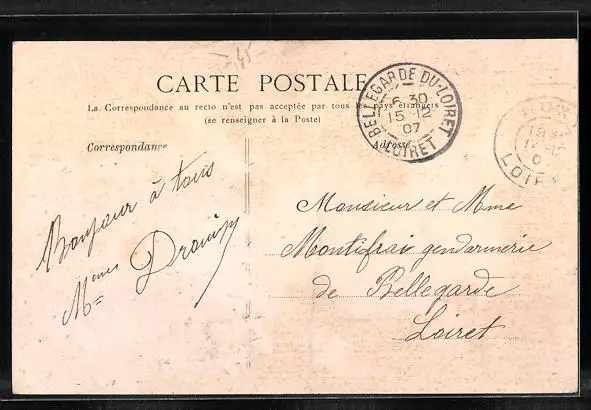 CARTE POSTALE
La Correspondance au recto n'est pas acceptée par tous les pays étrangers
(se renseigner à la Poste)
Correspondance
Adresse
BELLEGARDE DU-LOIRET
6 30
15 12
07
LOIRET
Bonjour à tous
Drouin
Monsieur et Mme
Montifrai gendarmerie
de Bellegarde
Loiret